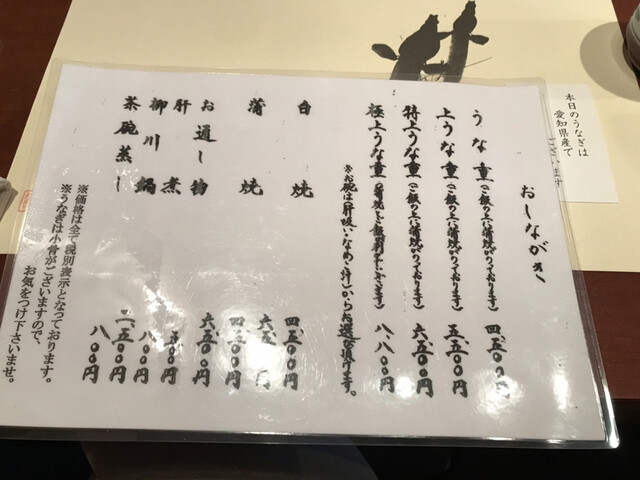 本日のうなぎは
愛知県産で
ございます
おしながき
うな重(ご飯の上に蒲焼がのっております) 四、五〇〇円
上うな重(ご飯の上に蒲焼がのっております) 五、五〇〇円
特上うな重(ご飯の上に蒲焼がのっております) 六、五〇〇円
極上うな重 八、八〇〇円
お選び頂けます。
白焼 四、五〇〇円
六、五〇〇円
蒲焼 四、五〇〇円
六、五〇〇円
お通し物 五〇〇円
肝煮 八〇〇円
柳川鍋 二、五〇〇円
茶碗蒸し 八〇〇円
※価格は全て税別表示となっております。
※うなぎは小骨がございますので、
お気をつけ下さいませ。